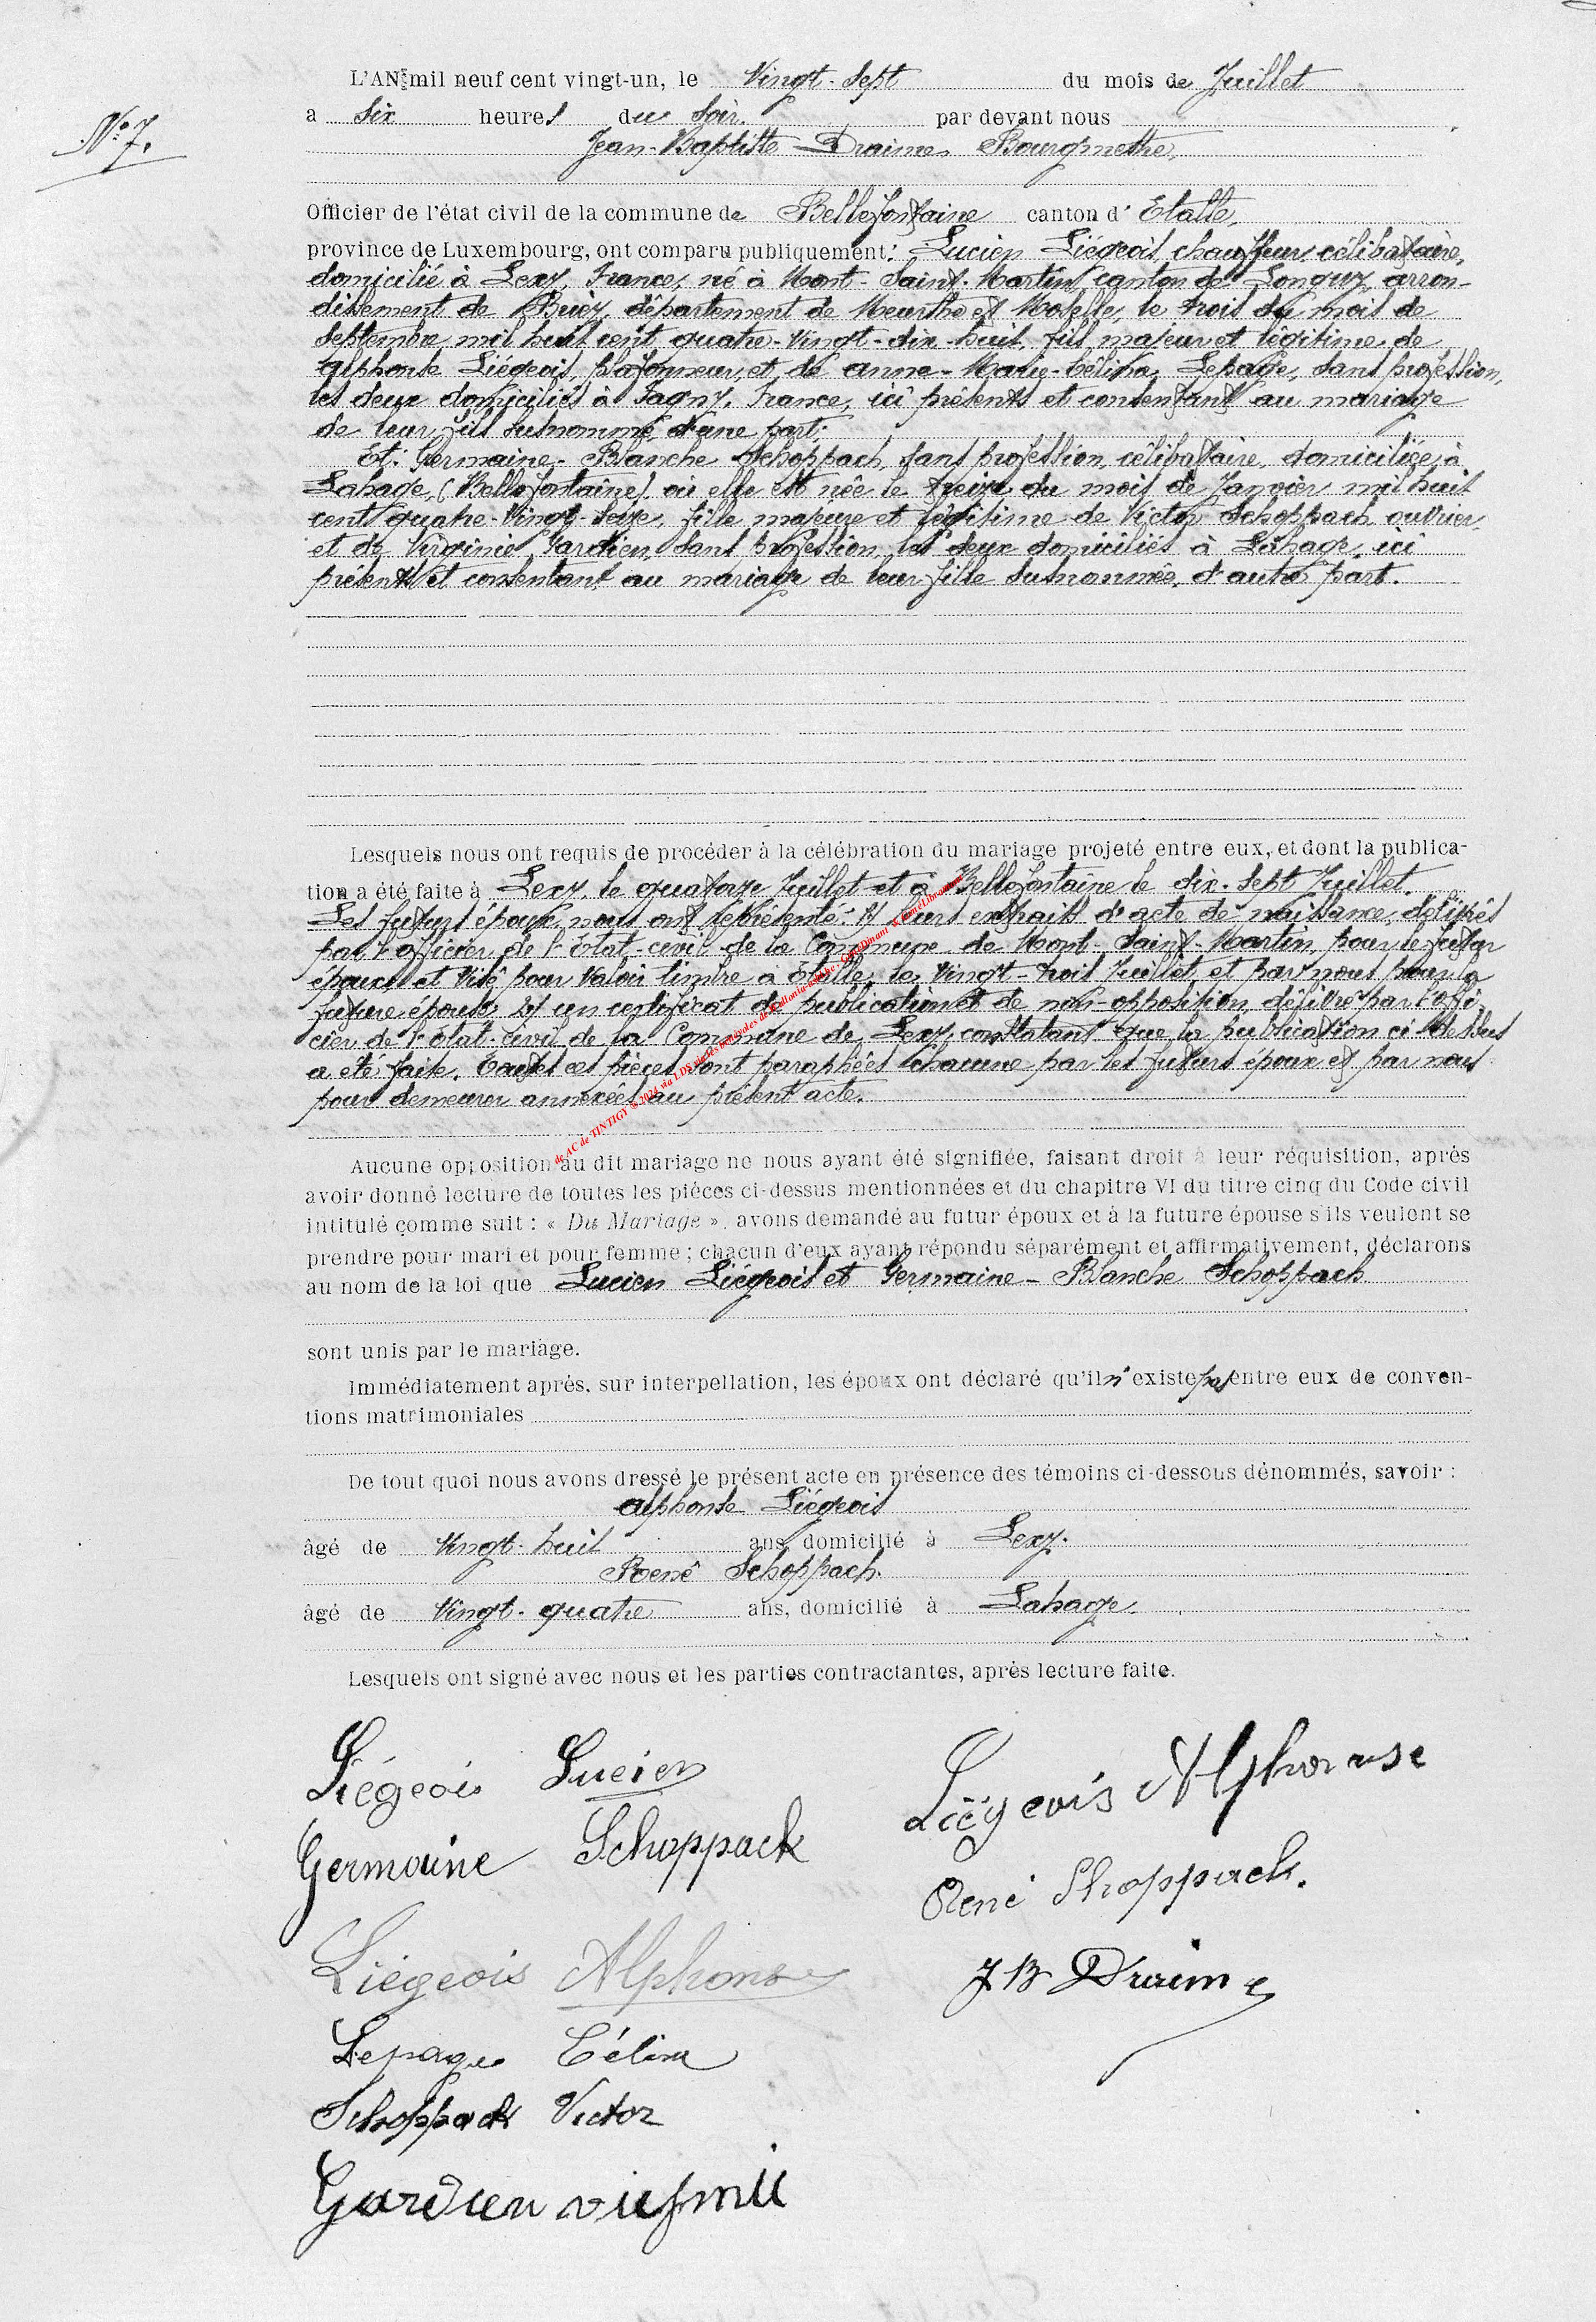 L'AN mil neuf cent vingt-un, le Vingt-Sept du mois de Juillet
a Six heures du Soir. par devant nous
N° 7.
Jean-Baptiste Draime, Bourgmestre,
Officier de l'état civil de la commune de Bellefontaine canton d' Etalle,
province de Luxembourg, ont comparu publiquement: Lucien Liégeois, chauffeur, célibataire,
domicilié à Lexy, France, né à Mont-Saint-Martin, canton de Longwy, arron-
dissement de Briey, département de Meurthe et Moselle, le trois du mois de
Septembre mil huit cent quatre-vingt-dix-huit, fils majeur et légitime de
Alphonse Liégeois, plafonneur, et de Anne-Marie-Célina Lepage, sans profession,
les deux domiciliés à Fagny, France, ici présents et consentant au mariage
de leur fils susnommé, d'une part;
Et: Germaine-Blanche Schoppach, sans profession, célibataire, domiciliée à
Lahage, (Bellefontaine) où elle est née le treize du mois de Janvier mil huit
cent quatre-vingt-seize, fille majeure et légitime de Victor Schoppach, ouvrier,
et de Virginie Gardien, sans profession, les deux domiciliés à Lahage, ici
présents et consentant au mariage de leur fille susnommée, d'autre part.
Lesquels nous ont requis de procéder à la célébration du mariage projeté entre eux, et dont la publica-
tion a été faite à Lexy, le quatorze Juillet et à Bellefontaine le dix-sept Juillet.
Les futurs époux nous ont représenté: 1) leurs extraits d'acte de naissance, délivrés
par l'officier de l'état-civil de la Commune de Mont-Saint-Martin, pour le futur
époux et visé pour valoir timbre à Etalle, le vingt-trois Juillet, et par nous pour la
future épouse 2) un certificat de publication et de non-opposition délivré par l'offi-
cier de l'état-civil de la Commune de Lexy, constatant que la publication ci-dessus
a été faite. Toutes ces pièces sont paraphées chacune par les futurs époux et par nous
pour demeurer annexées au présent acte.
de AC de TINTIGY © 2024 via LDS
Aucune opposition au dit mariage ne nous ayant été signifiée, faisant droit à leur réquisition, après
avoir donné lecture de toutes les pièces ci-dessus mentionnées et du chapitre VI du titre cinq du Code civil
intitulé comme suit : « Du Mariage », avons demandé au futur époux et à la future épouse s'ils veulent se
prendre pour mari et pour femme ; chacun d'eux ayant répondu séparément et affirmativement, déclarons
au nom de la loi que Lucien Liégeois et Germaine-Blanche Schoppach
sont unis par le mariage.
Immédiatement après, sur interpellation, les époux ont déclaré qu'il n'existe pas entre eux de conven-
tions matrimoniales
De tout quoi nous avons dressé le présent acte en présence des témoins ci-dessous dénommés, savoir :
Alphonse Liégeois
âgé de vingt-huit ans, domicilié à Lexy.
René Schoppach.
âgé de vingt-quatre ans, domicilié à Lahage.
Lesquels ont signé avec nous et les parties contractantes, après lecture faite.
Liégeois Lucien
Liégeois Alphonse
Germaine Schoppack
René Shoppack.
Liégeois Alphonse
J B Draime
Lepage Célina
Schoppack Victor
Gardien